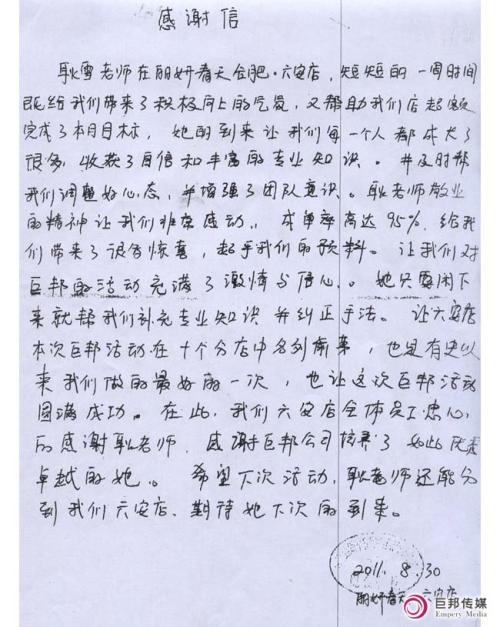 感谢信
耿雪老师在丽妍春天合肥·六安店,短短的一周时间
既给我们带来了积极向上的气氛,又帮助我们店超额
完成了本月目标,她的到来让我们每一个人都成长了
很多,收获了自信和丰富的专业知识。并及时帮
我们调整好心态,并增强了团队意识。耿老师敬业
的精神让我们非常感动。成单率高达95%.给我
们带来了很多惊喜,超乎我们的预料。让我们对
巨邦的活动充满了激情与信心。她只要闲下
来就帮我们补充专业知识并纠正手法。让六安店
本次巨邦活动在十个分店中名列前茅,也是有史以
来我们做的最好的一次,也让这次巨邦活动
圆满成功。在此,我们六安店全体员工忠心
的感谢耿老师.感谢巨邦公司培养了如此优秀
卓越的她。希望下次活动,耿老师还能分
到我们六安店.期待她下次的到来。
2011.8.30
丽妍春天 六安店
巨邦传媒
Empery Media